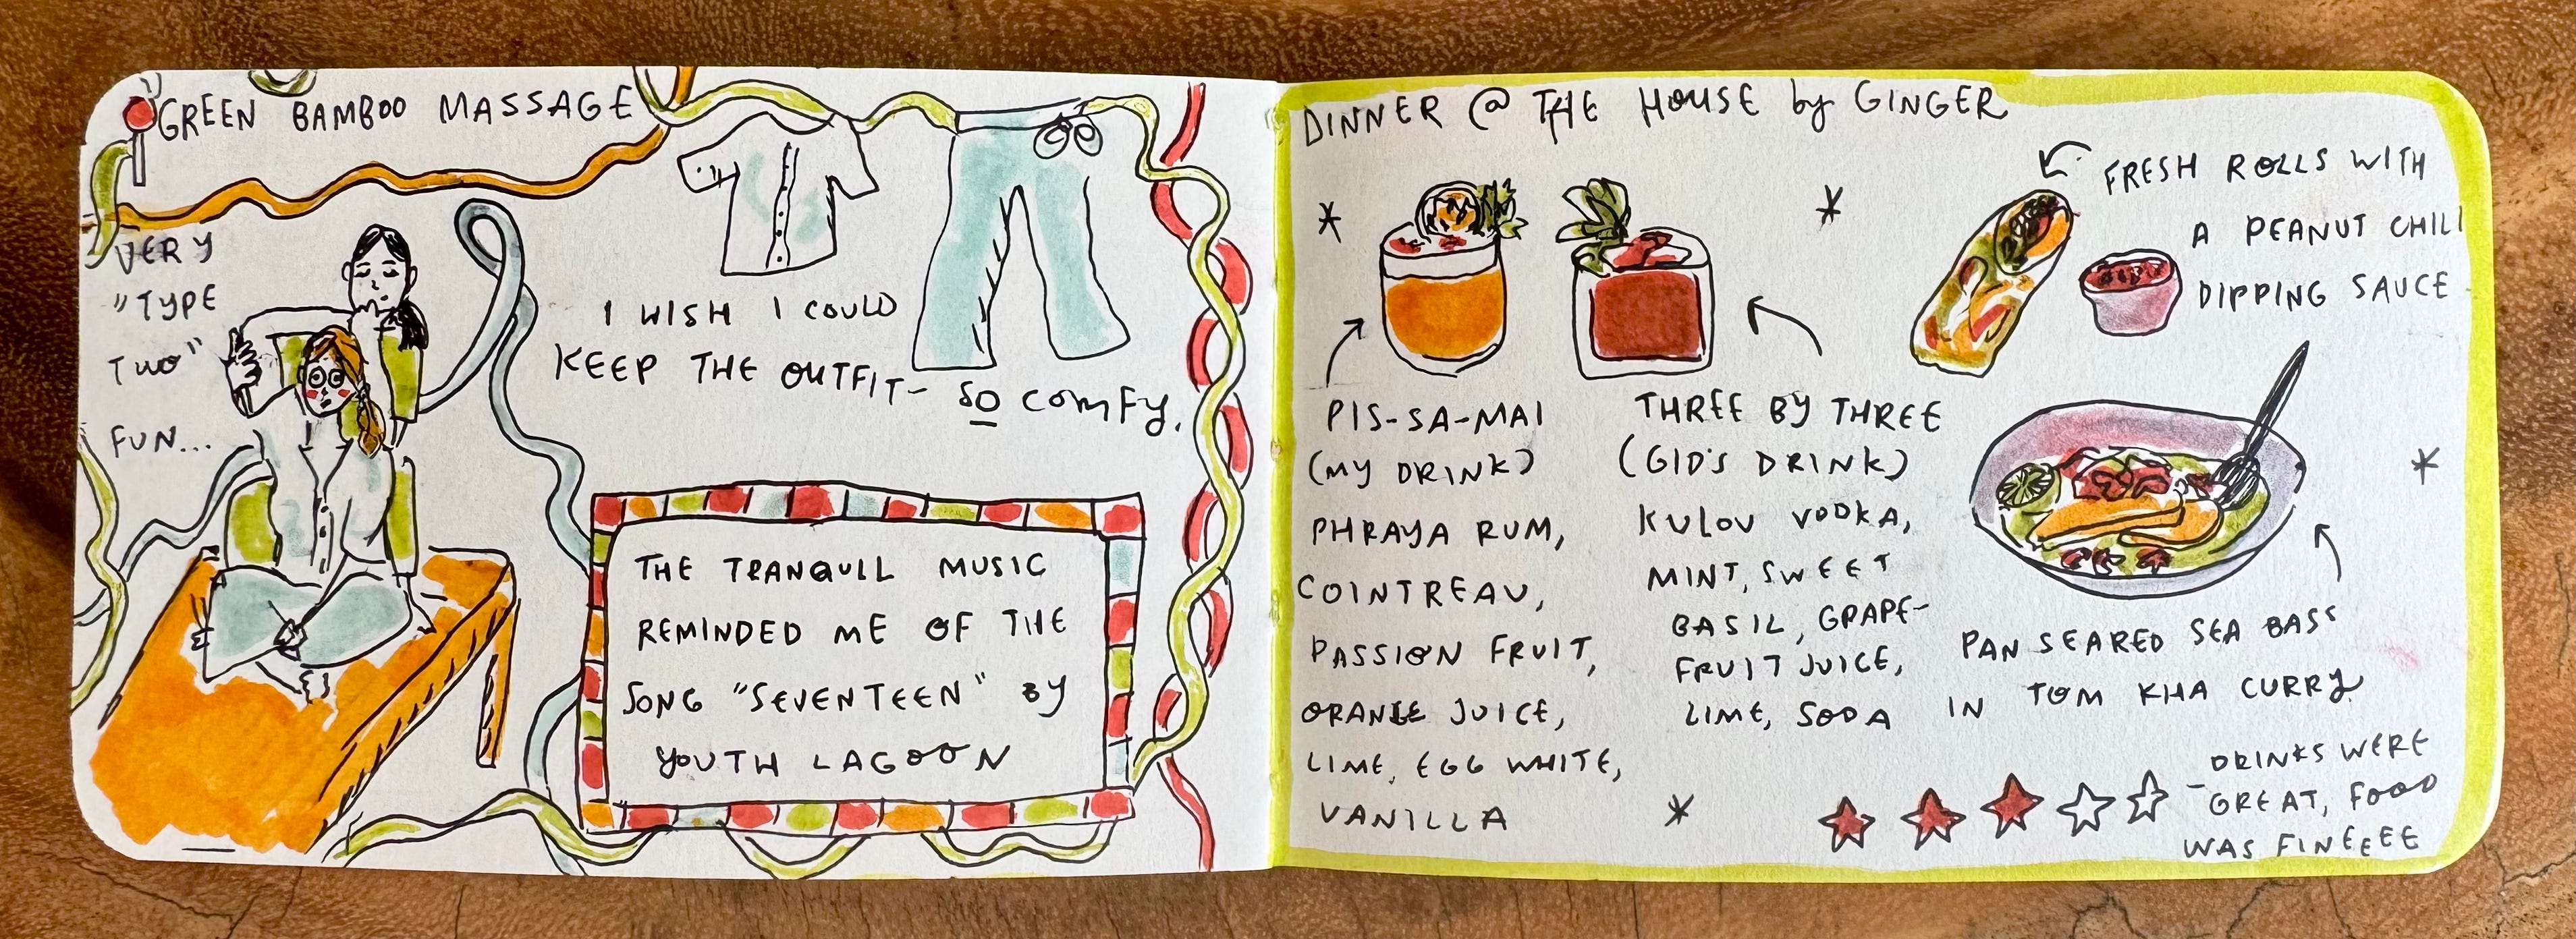 GREEN BAMBOO MASSAGE
VERY
"TYPE
TWO"
FUN...
I WISH I COULD
KEEP THE OUTFIT- SO COMFY.
THE TRANQUIL MUSIC
REMINDED ME OF THE
SONG "SEVENTEEN" BY
YOUTH LAGOON
DINNER @ THE HOUSE by GINGER
FRESH ROLLS WITH
A PEANUT CHILI
DIPPING SAUCE
PIS-SA-MAI
(MY DRINK)
PHRAYA RUM,
COINTREAU,
PASSION FRUIT,
ORANGE JUICE,
LIME, EGG WHITE,
VANILLA
THREE BY THREE
(GID'S DRINK)
KULOV VODKA,
MINT, SWEET
BASIL, GRAPE-
FRUIT JUICE,
LIME, SODA
PAN SEARED SEA BASS
IN TOM KHA CURRY
- DRINKS WERE
GREAT, FOOD
WAS FINEEEE